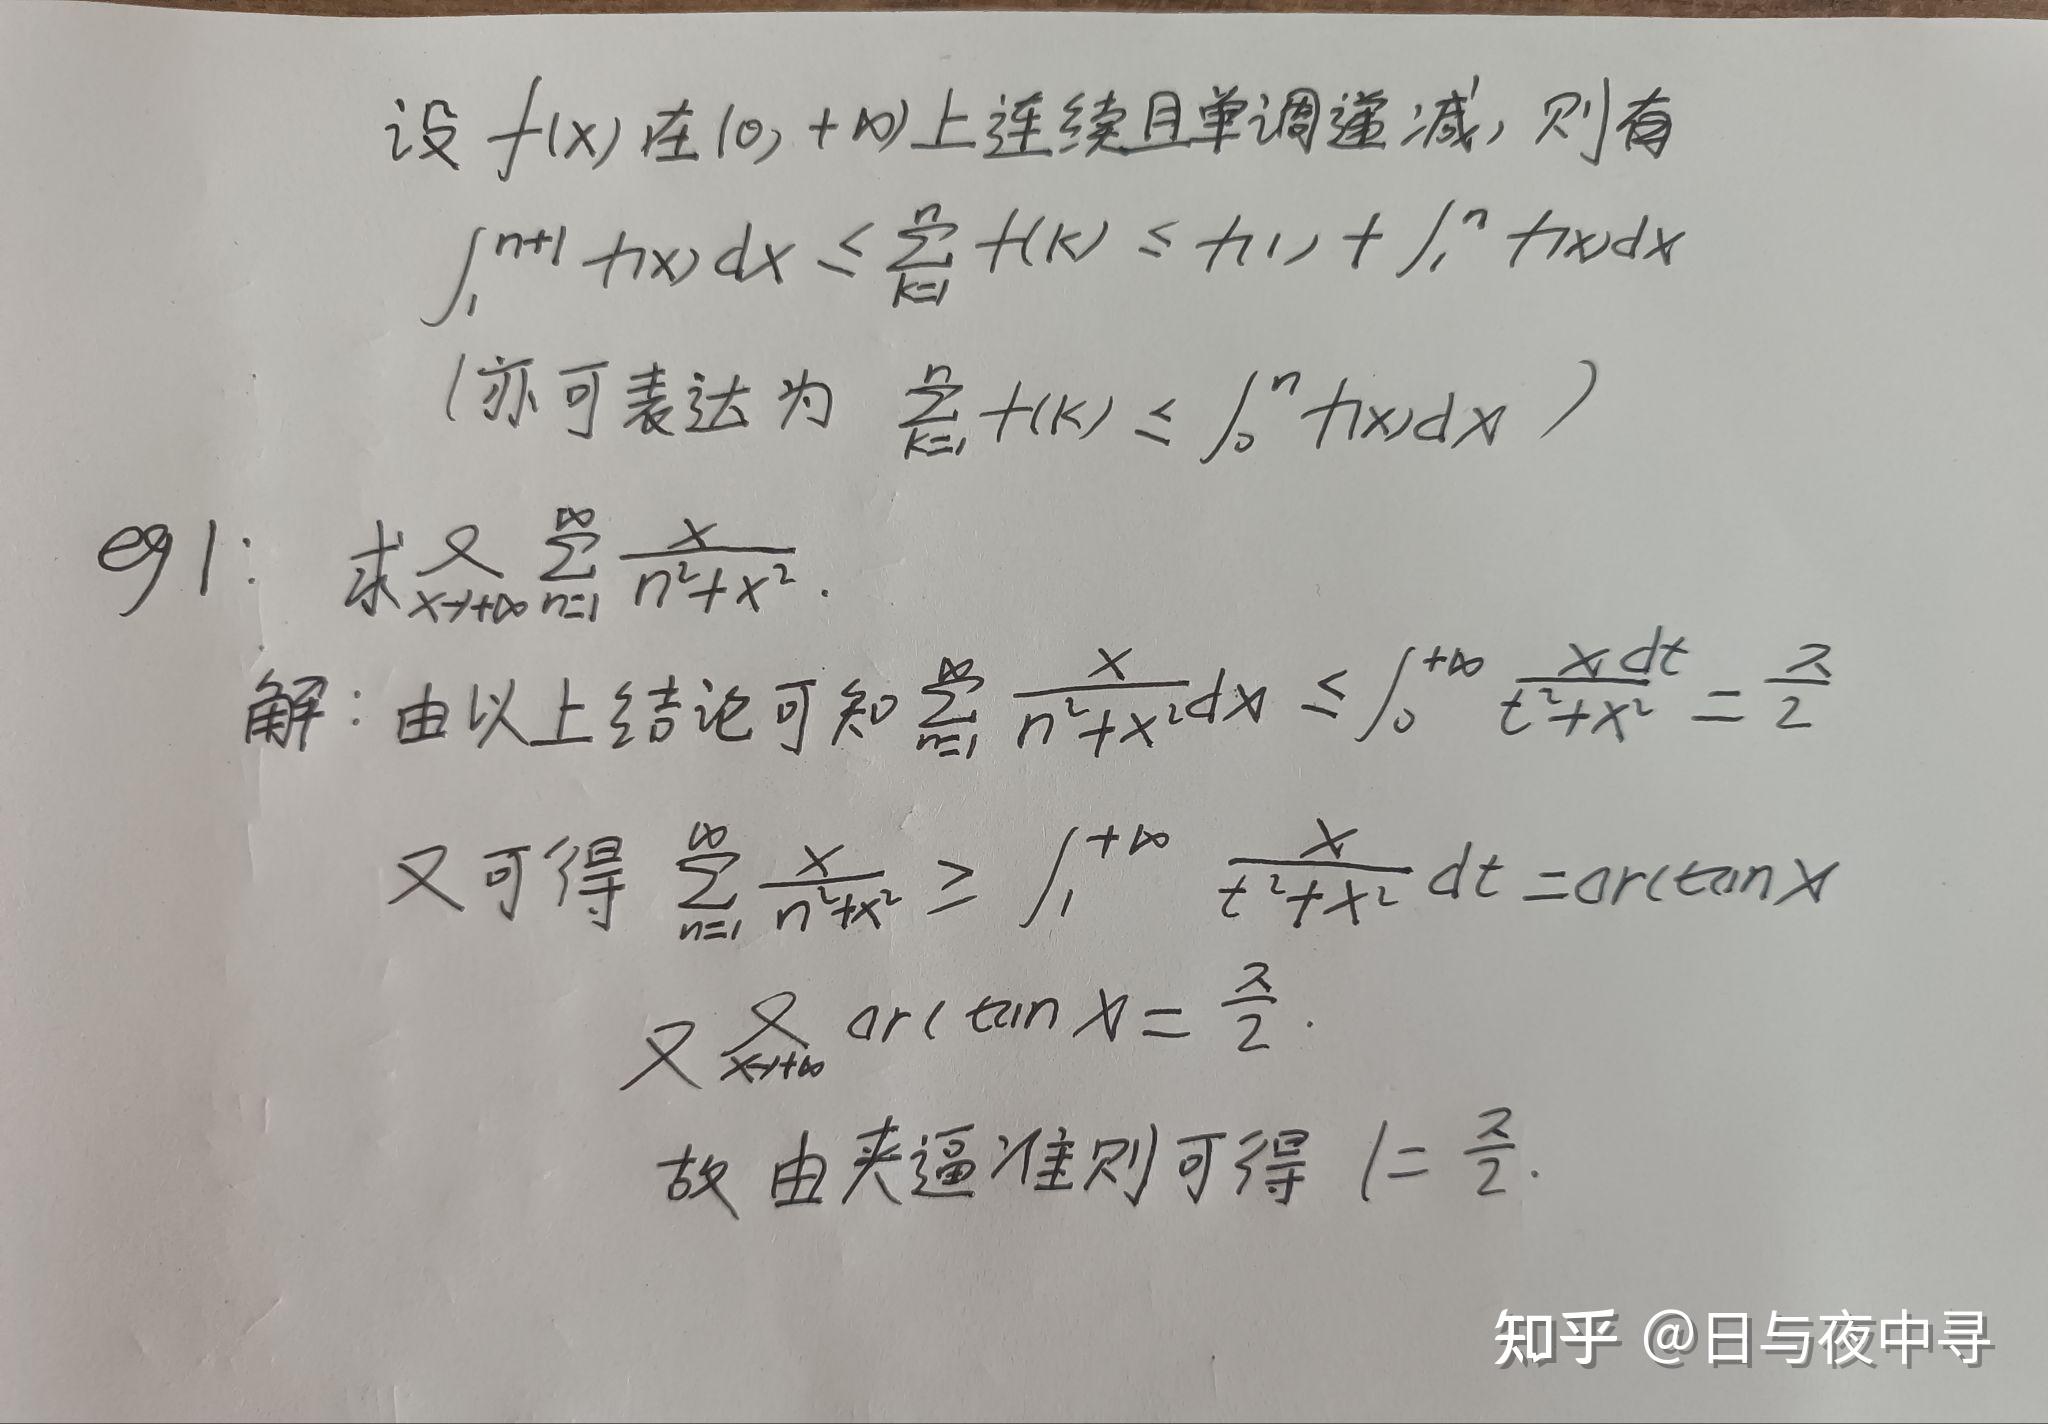 设 f(x) 在 (0, +∞) 上连续且单调递减, 则有
∫₁ⁿ⁺¹ f(x) dx ≤ ∑ₖ₌₁ⁿ f(k) ≤ f(1) + ∫₁ⁿ f(x)dx
(亦可表达为 ∑ₖ₌₁ⁿ f(k) ≤ ∫₀ⁿ f(x)dx )
eg 1: 求 lim_{x→+∞} ∑_{n=1}^{∞} x/(n²+x²).
解: 由以上结论可知 ∑_{n=1}^{∞} x/(n²+x²) dx ≤ ∫₀^{+∞} xdt/(t²+x²) = π/2
又可得 ∑_{n=1}^{∞} x/(n²+x²) ≥ ∫₁^{+∞} x/(t²+x²) dt = arctan x
又 lim_{x→+∞} arctan x = π/2.
故由夹逼准则可得 I = π/2.
知乎 @日与夜中寻